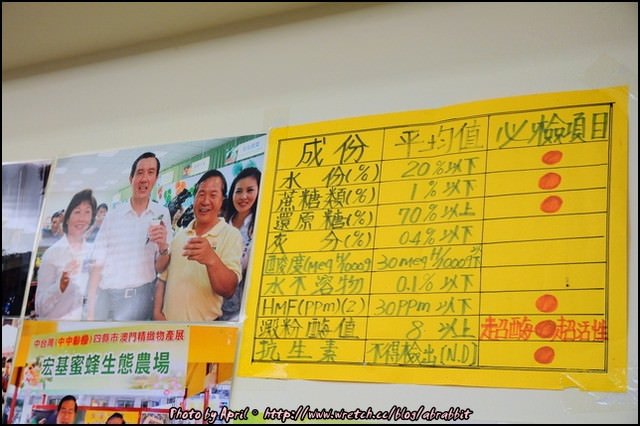 成份 平均值 必檢項目
水 份(%) 20%以下
蔗糖類(%) 1%以下
還原糖(%) 70%以上
灰 分(%) 0.4%以下
酸度(meq H/1000g 30meq H/1000g以下
水不溶物 0.1%以下
HMF(PPm)(2) 30PPm以下
澱粉酶值 8 以上 超酶 超活性
抗生素 不得檢出[N.D]
中台灣(中中彰投)四縣市澳門精緻物產展
宏基蜜蜂生態農場
Photo by April © http://www.wretch.cc/blog/abrabbit